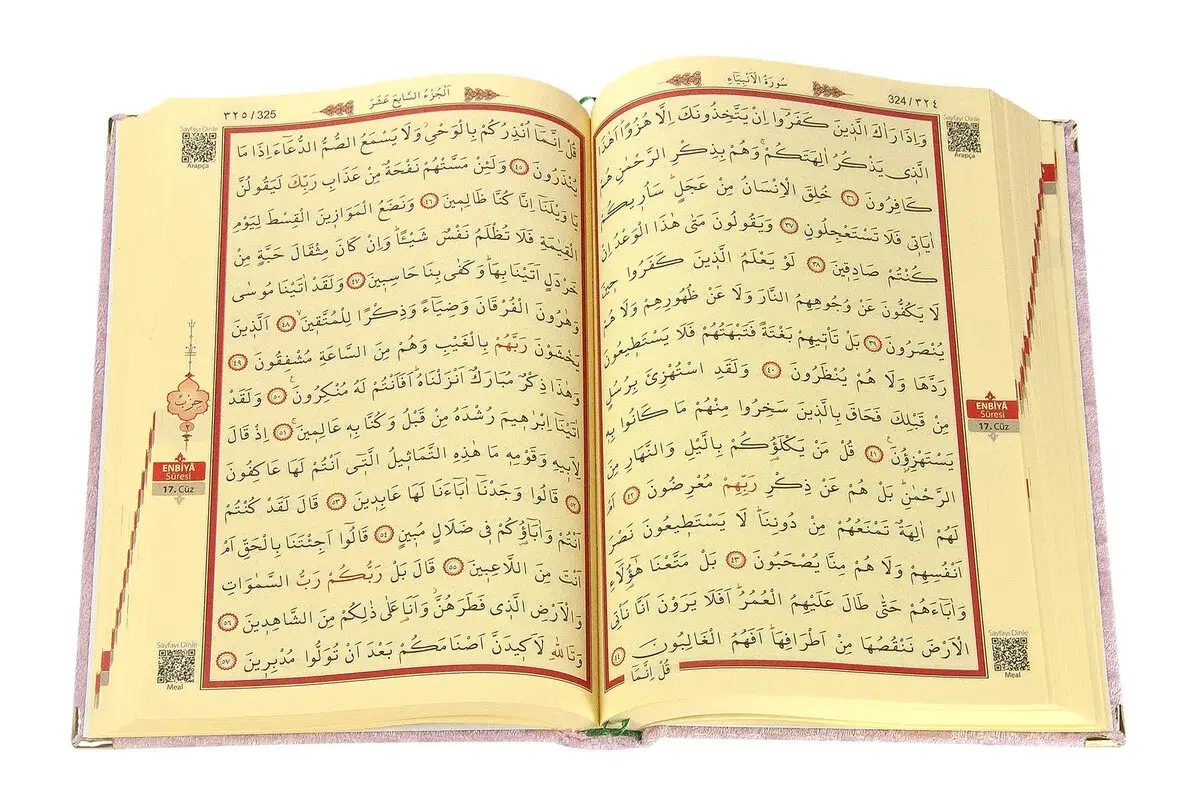 سُورَةُ الْاَنْبِيَٓاءِ
324/٣٢٤
Sayfayı Dinle
Arapça
وَاِذَا رَاٰكَ الَّذ۪ينَ كَفَرُٓوا اِنْ يَتَّخِذُونَكَ اِلَّا هُزُوًاۜ اَهٰذَا
الَّذ۪ي يَذْكُرُ اٰلِهَتَكُمْۚ وَهُمْ بِذِكْرِ الرَّحْمٰنِ هُمْ
كَافِرُونَ ٣٦ خُلِقَ الْاِنْسَانُ مِنْ عَجَلٍۜ سَاُر۪يكُمْ
اٰيَات۪ي فَلَا تَسْتَعْجِلُونِ ٣٧ وَيَقُولُونَ مَتٰى هٰذَا الْوَعْدُ اِنْ
كُنْتُمْ صَادِق۪ينَ ٣٨ لَوْ يَعْلَمُ الَّذ۪ينَ كَفَرُوا ح۪ينَ
لَا يَكُفُّونَ عَنْ وُجُوهِهِمُ النَّارَ وَلَا عَنْ ظُهُورِهِمْ وَلَا هُمْ
يُنْصَرُونَ ٣٩ بَلْ تَأْت۪يهِمْ بَغْتَةً فَتَبْهَتُهُمْ فَلَا يَسْتَط۪يعُونَ
رَدَّهَا وَلَا هُمْ يُنْظَرُونَ ٤٠ وَلَقَدِ اسْتُهْزِئَ بِرُسُلٍ
مِنْ قَبْلِكَ فَحَاقَ بِالَّذ۪ينَ سَخِرُوا مِنْهُمْ مَا كَانُوا بِه۪
يَسْتَهْزِؤُ۫نَ۟ ٤١ قُلْ مَنْ يَكْلَؤُ۬كُمْ بِالَّيْلِ وَالنَّهَارِ مِنَ
الرَّحْمٰنِۜ بَلْ هُمْ عَنْ ذِكْرِ رَبِّهِمْ مُعْرِضُونَ ٤٢ اَمْ
لَهُمْ اٰلِهَةٌ تَمْنَعُهُمْ مِنْ دُونِنَاۜ لَا يَسْتَط۪يعُونَ نَصْرَ
اَنْفُسِهِمْ وَلَا هُمْ مِنَّا يُصْحَبُونَ ٤٣ بَلْ مَتَّعْنَا هٰٓؤُ۬لَٓاءِ
وَاٰبَٓاءَهُمْ حَتّٰى طَالَ عَلَيْهِمُ الْعُمُرُۜ اَفَلَا يَرَوْنَ اَنَّا نَأْتِي
الْاَرْضَ نَنْقُصُهَا مِنْ اَطْرَافِهَاۜ اَفَهُمُ الْغَالِبُونَ ٤٤
قُلْ اِنَّمَٓا
ENBİYÂ
Sûresi
17. Cüz
Sayfayı Dinle
Meal
٣٢٥/325
اَلْجُزْءُ السَّابِعَ عَشَرَ
Sayfayı Dinle
Arapça
قُلْ اِنَّمَٓا اُنْذِرُكُمْ بِالْوَحْيِۘ وَلَا يَسْمَعُ الصُّمُّ الدُّعَٓاءَ اِذَا مَا
يُنْذَرُونَ ٤٥ وَلَئِنْ مَسَّتْهُمْ نَفْحَةٌ مِنْ عَذَابِ رَبِّكَ لَيَقُولُنَّ
يَا وَيْلَنَٓا اِنَّا كُنَّا ظَالِم۪ينَ ٤٦ وَنَضَعُ الْمَوَاز۪ينَ الْقِسْطَ لِيَوْمِ
الْقِيٰمَةِ فَلَا تُظْلَمُ نَفْسٌ شَيْـًٔاۜ وَاِنْ كَانَ مِثْقَالَ حَبَّةٍ مِنْ
خَرْدَلٍ اَتَيْنَا بِهَاۜ وَكَفٰى بِنَا حَاسِب۪ينَ ٤٧ وَلَقَدْ اٰتَيْنَا مُوسٰى
وَهٰرُونَ الْفُرْقَانَ وَضِيَٓاءً وَذِكْرًا لِلْمُتَّق۪ينَۙ ٤٨ اَلَّذ۪ينَ
يَخْشَوْنَ رَبَّهُمْ بِالْغَيْبِ وَهُمْ مِنَ السَّاعَةِ مُشْفِقُونَ ٤٩
وَهٰذَا ذِكْرٌ مُبَارَكٌ اَنْزَلْنَاهُۜ اَفَاَنْتُمْ لَهُ مُنْكِرُونَ۟ ٥٠ وَلَقَدْ
اٰتَيْنَٓا اِبْرٰه۪يمَ رُشْدَهُ مِنْ قَبْلُ وَكُنَّا بِه۪ عَالِم۪ينَۚ ٥١ اِذْ قَالَ
لِاَب۪يهِ وَقَوْمِه۪ مَا هٰذِهِ التَّمَاث۪يلُ الَّت۪ٓي اَنْتُمْ لَهَا عَاكِفُونَ
٥٢ قَالُوا وَجَدْنَٓا اٰبَٓاءَنَا لَهَا عَابِد۪ينَ ٥٣ قَالَ لَقَدْ كُنْتُمْ
اَنْتُمْ وَاٰبَٓاؤُ۬كُمْ ف۪ي ضَلَالٍ مُب۪ينٍ ٥٤ قَالُٓوا اَجِئْتَنَا بِالْحَقِّ اَمْ
اَنْتَ مِنَ اللَّاعِب۪ينَ ٥٥ قَالَ بَلْ رَبُّكُمْ رَبُّ السَّمٰوَاتِ
وَالْاَرْضِ الَّذ۪ي فَطَرَهُنَّۘ وَاَنَا۬ عَلٰى ذٰلِكُمْ مِنَ الشَّاهِد۪ينَ ٥٦
وَتَاللّٰهِ لَاَك۪يدَنَّ اَصْنَامَكُمْ بَعْدَ اَنْ تُوَلُّوا مُدْبِر۪ينَ ٥٧
حزب
٢
ENBİYÂ
Sûresi
17. Cüz
Sayfayı Dinle
Meal